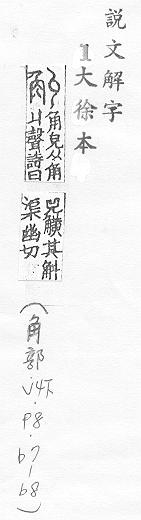 説文解字
1大徐本
觓 角皃从角
丩聲詩曰
兕觵其觓
渠幽切
(角部.v4下.p8.b7-b8)